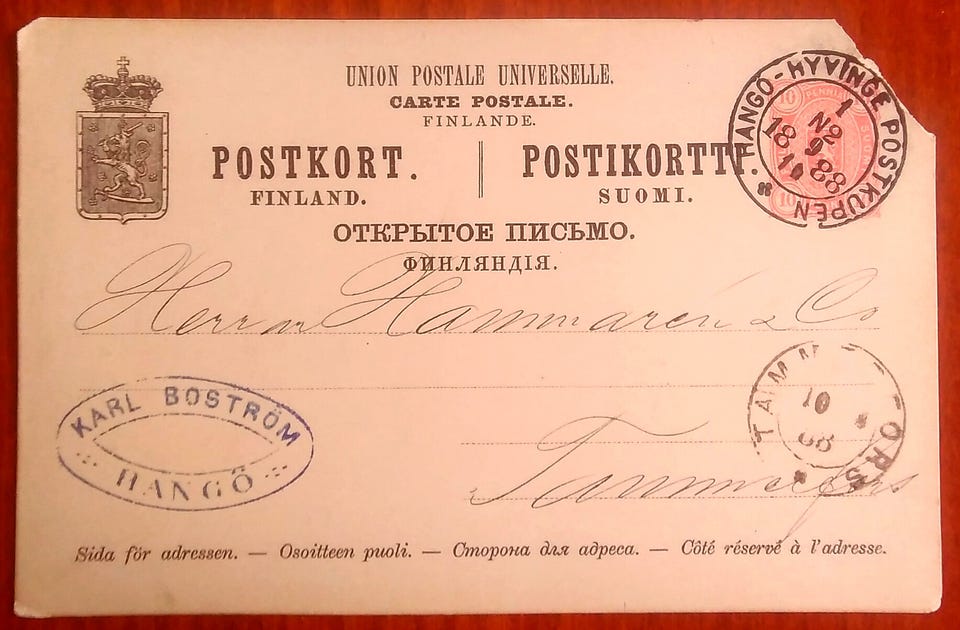 UNION POSTALE UNIVERSELLE.
CARTE POSTALE.
FINLANDE.
POSTKORT. POSTIKORTTI.
FINLAND. SUOMI.
ОТКРЫТОЕ ПИСЬМО.
ФИНЛЯНДІЯ.
HANGÖ-HYVINGE POSTKUPÉN
1
No 2
18 9 88
10
10 PENNIÄ
10
Herrar Hammarén & Co
TAMMERFORS
10
88
KARL BOSTRÖM
HANGÖ
Tammerfors
Sida för adressen. — Osoitteen puoli. — Сторона для адреса. — Côté réservé à l'adresse.